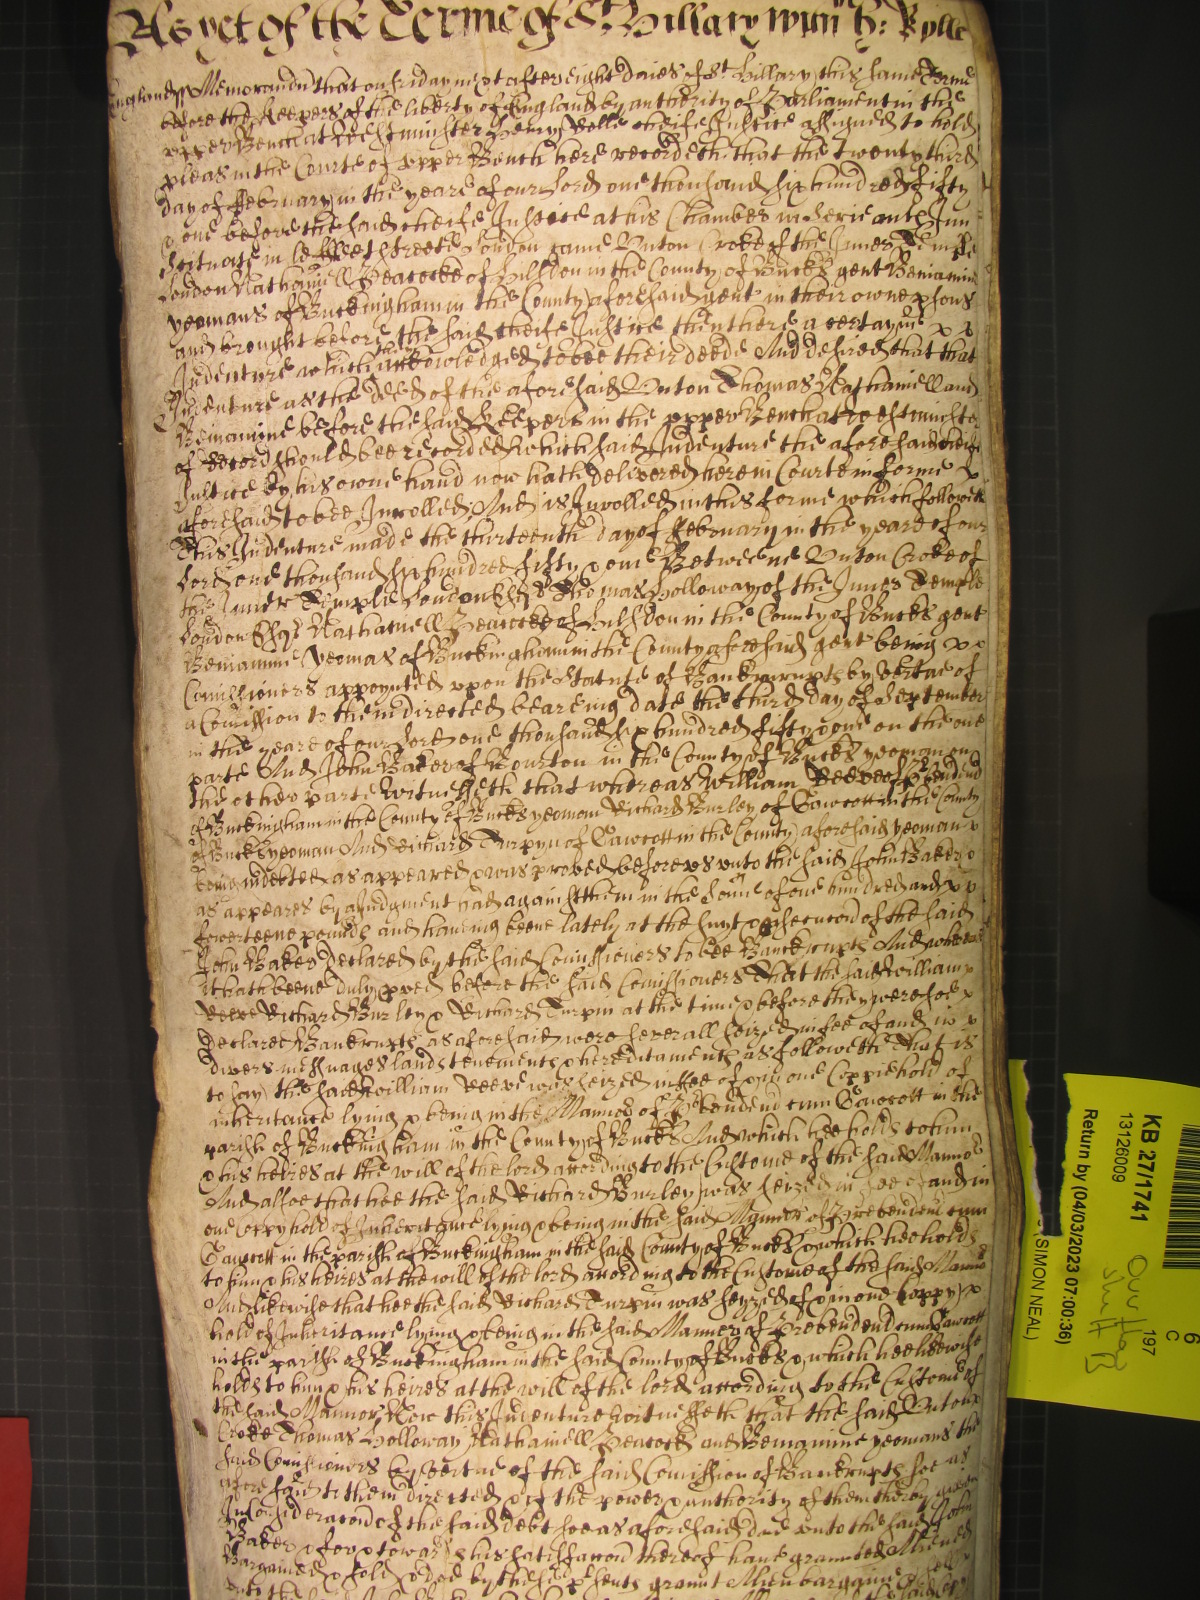 As yet of the Terme of St Hillary witn H: Rolle
England ss Memorandu that on Friday next after eight daies of St Hillary this same Terme
before the Keepers of the liberty of England by authority of Parliament in the
upper Bench at Westminster Henry Rolle cheife Justice assigned to hold
pleas in the Courte of upper Bench here recordeth that the twenty third
day of ffebruary in the yeare of our Lord one thousand six hundred fifty
& one before the said cheife Justice at his Chamber in Serieants Inn
scituate in ffleetstreete London came Unton Croke of the Inner Temple
London Nathaniell Peacocke of Hillsdon in the County of Bucks gent Beniamin
yeomans of Buckingham in the County aforesaid gent in their owne psons
and brought before the said cheife Justice then there a certayne
Indenture which they acknowledged to bee their deede And desired that that
Indenture as the deed of the aforesaid Unton Thomas Nathaniell and
Beniamine before the said Keepers in the upper Bench at Westminster
of Record should bee recorded which said Indenture the aforesaid cheife
Justice by his owne hand now hath delivered here in Courte in forme
aforesaid to bee Inrolled And is Inrolled in this forme which followeth
This Indenture made the thirteenth day of ffebruary in the yeare of our
Lord one thousand six hundred fifty & one Betweene Unton Croke of
the Inner Temple London Esqr Thomas Holloway of the Inner Temple
London Esqr Nathaniell Peacocke of Hillsdon in the County of Bucks gent
Beniamine Yeomax of Buckingham in the County aforesaid gent being
Comissioners appoynted upon the Statute of Bankrupts by vertue of
a Comission to them directed beareing date the third day of September
in the yeare of our Lord one thousand six hundred fifty & one on the one
parte And John Baker of Bourton in the County of Bucks yeoman on
the other parte Witnesseth that whereas William Reeve of Prebend
of Buckingham in the County of Bucks yeoman Richard Burley of Gawcott in the County
of Bucks yeoman And Richard Turpyn of Gawcott in the County aforesaid yeoman
being indebted as appeared & was proved before us unto the said John Baker
as appeares by a Judgment had against them in the Some of one hundred and
fowerteene pounds and haveing beene lately at the sunt & psecucon of the said
John Baker Declared by the said Comissioners to bee Banckrupts And whereas
it hath beene duly pved before the said Comissioners That the said William
Reeve Richard Burley & Richard Turpin at the time & before they were soe
Declared Bankrupts as aforesaid were severall seized in fee of and in
divers messuages lands tenements & hereditaments as followeth That is
to say the said William Reeve was seized in ffee of & in one Coppiehold of
inheritance lying & being in the Mannor of Prebendend cum Gawcott in the
parish of Buckingham in the County of Bucks And which hee holds to him
& his heires at the will of the lord according to the Custome of the said Mannor
And alsoe that hee the said Richard Burley was seized in fee of and in
one coppyhold of Inheritance lying & being in the said Mannor of Prebendend cum
Gawcott in the parish of Buckingham in the said County of Bucks & which hee holds
to him & his heires at the will of the lord according to the Custome of the said Mannor
And likewise that hee the said Richard Turpin was seized of & in one Coppy
hold of Inheritance lying & being in the said Mannor of Prebendend cum Gawcott
in the parish of Buckingham in the said County of Bucks & which hee likewise
holds to him & his heires at the will of the lord according to the Custome of
the said Mannor Now this Indenture witnesseth that the said Unton
Croke Thomas Holloway Nathaniell Peacock and Beniamine yeomans the
said Comissioners by vertue of the said Comission of Bankrupts soe as
aforesaid to them directed & of the power & authority of them therein given
In consideracon of the said debt soe as aforesaid due unto the said John
Baker & for & towards his satisfaccon thereof have graunted Aliened
Bargained & sold & doe by these psents graunt Alien bargaine & sell
unto the said
KB 27/1741
13126009
Return by (04/03/2023 07:00:36)
(SIMON NEAL)
6
C
197